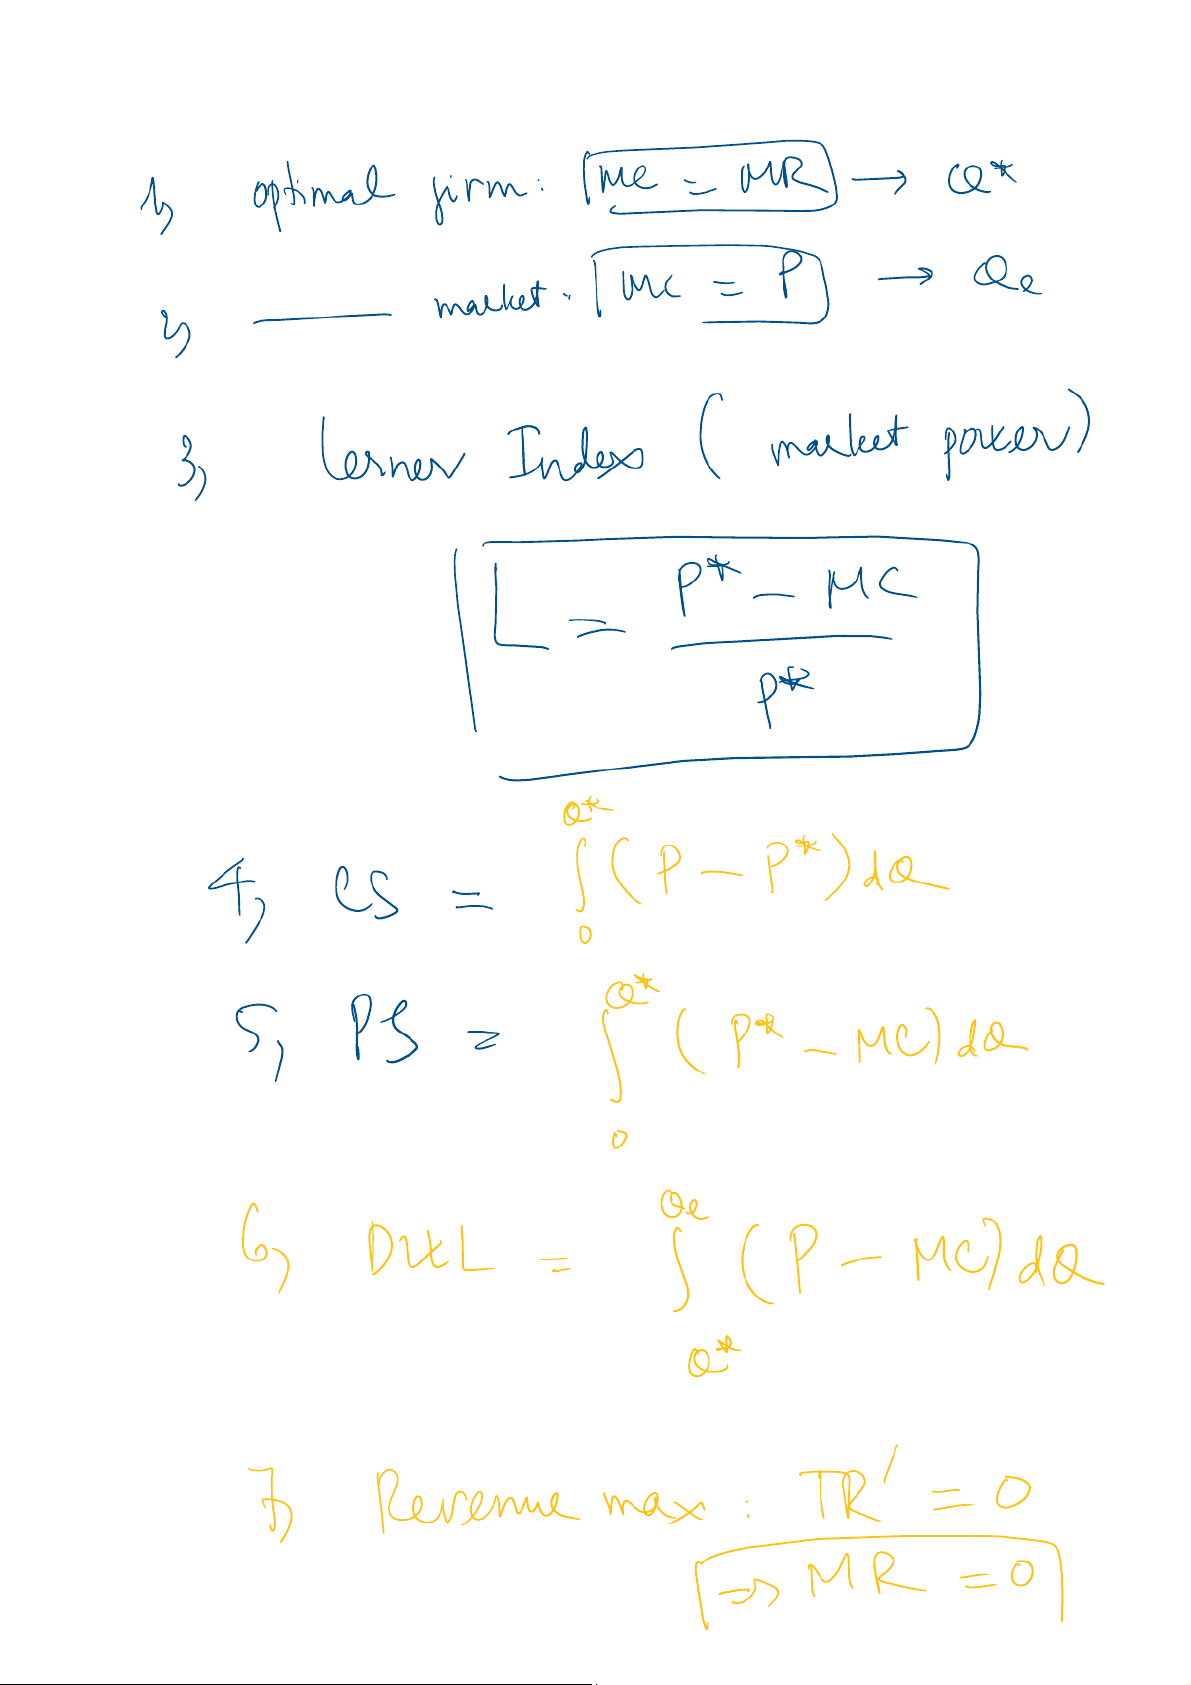 1, optimal firm: MC = MR → Q*
2, —— market: MC = P → Qe
3, Lerner Index ( market power)
L = (P* - MC) / P*
4, CS = ∫₀^Q* (P - P*) dQ
5, PS = ∫₀^Q* (P* - MC) dQ
6, DWL = ∫_Q*^Qe (P - MC) dQ
7, Revenue max : TR' = 0
=> MR = 0